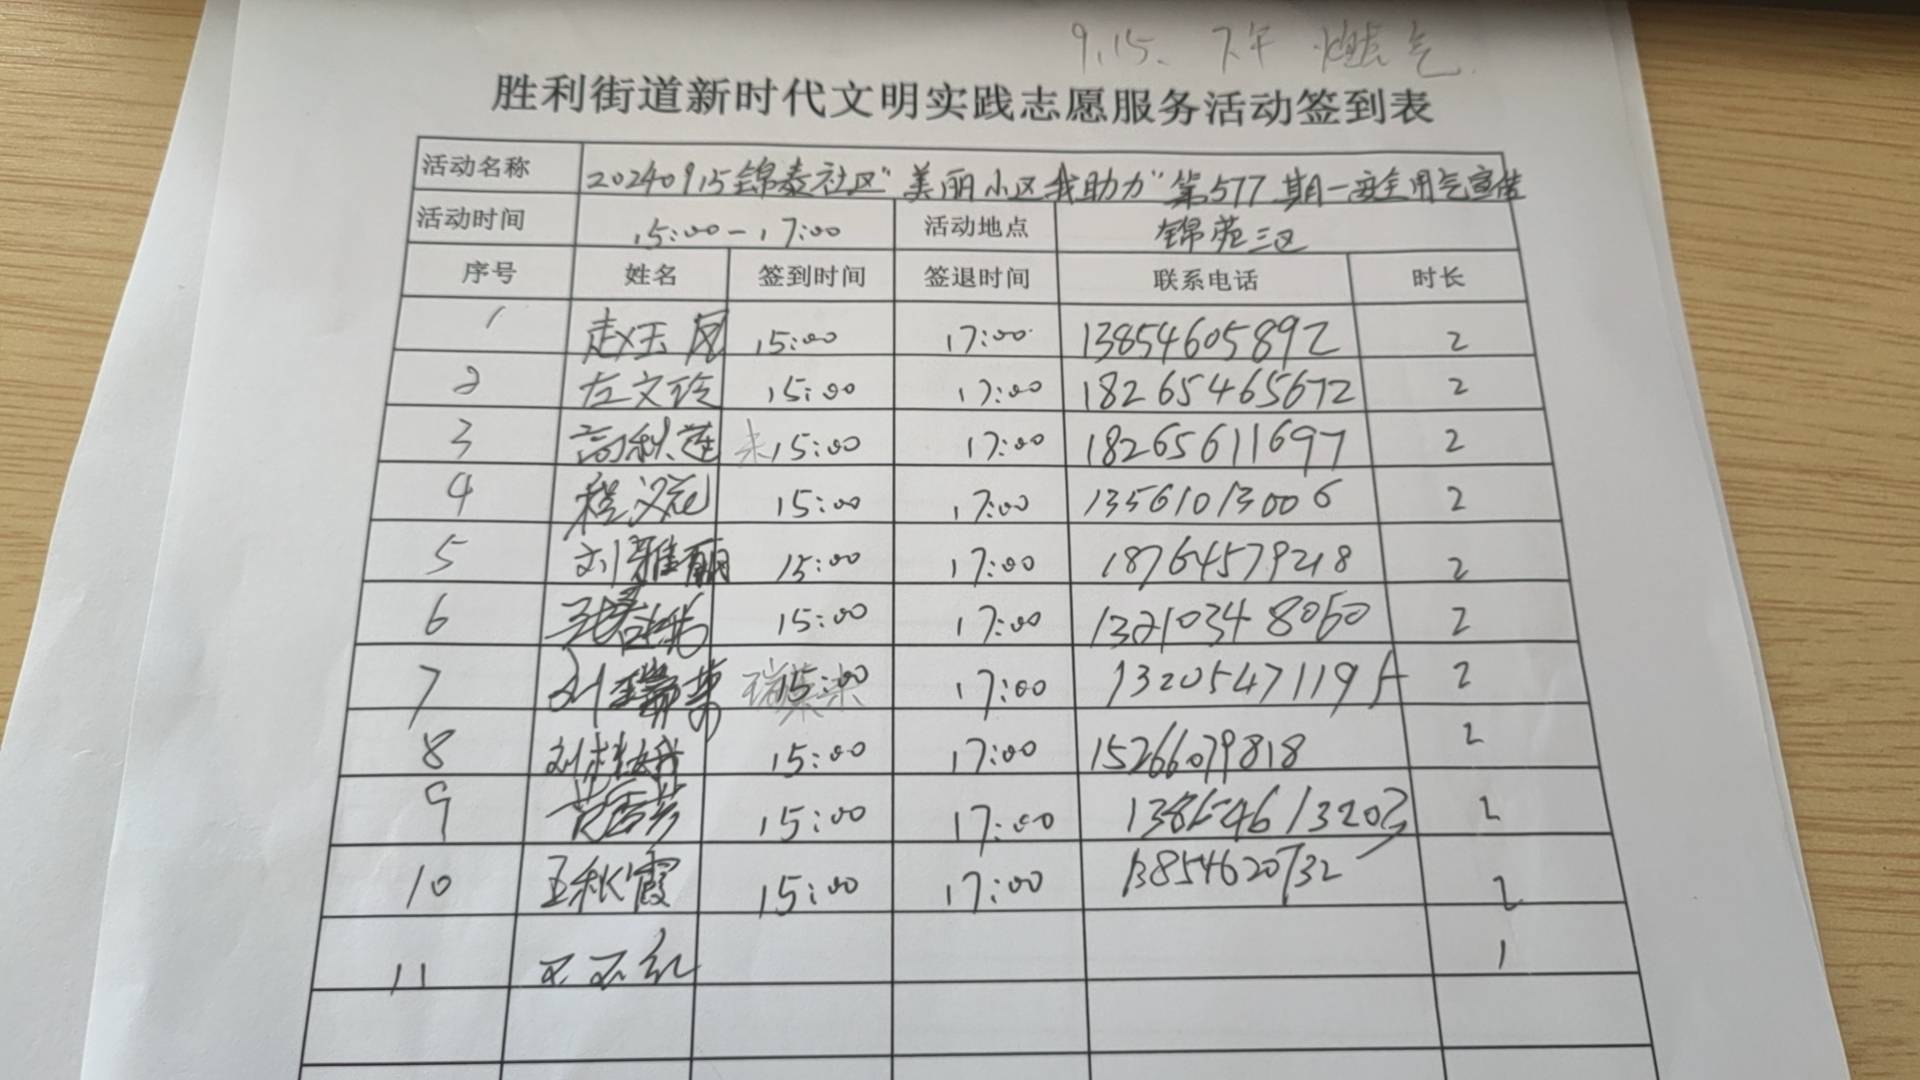 9.15、下午 燃气
胜利街道新时代文明实践志愿服务活动签到表
活动名称 20240915锦泰社区“美丽小区我助力”第577期—安全用气宣传
活动时间 15:00-17:00 活动地点 锦苑三区
序号 姓名 签到时间 签退时间 联系电话 时长
1 赵玉凤 15:00 17:00 13854605892 2
2 左文玲 15:00 17:00 18265465672 2
3 高秋莲 未 15:00 17:00 18265611697 2
4 程义花 15:00 17:00 13561013006 2
5 刘雅丽 15:00 17:00 18764579218 2
6 15:00 17:00 13210348060 2
7 刘瑞英 15:00 17:00 13205471195 2
8 刘桂娥 15:00 17:00 15266079818 2
9 15:00 17:00 13865461320 2
10 王秋霞 15:00 17:00 13854620732 2
11 1